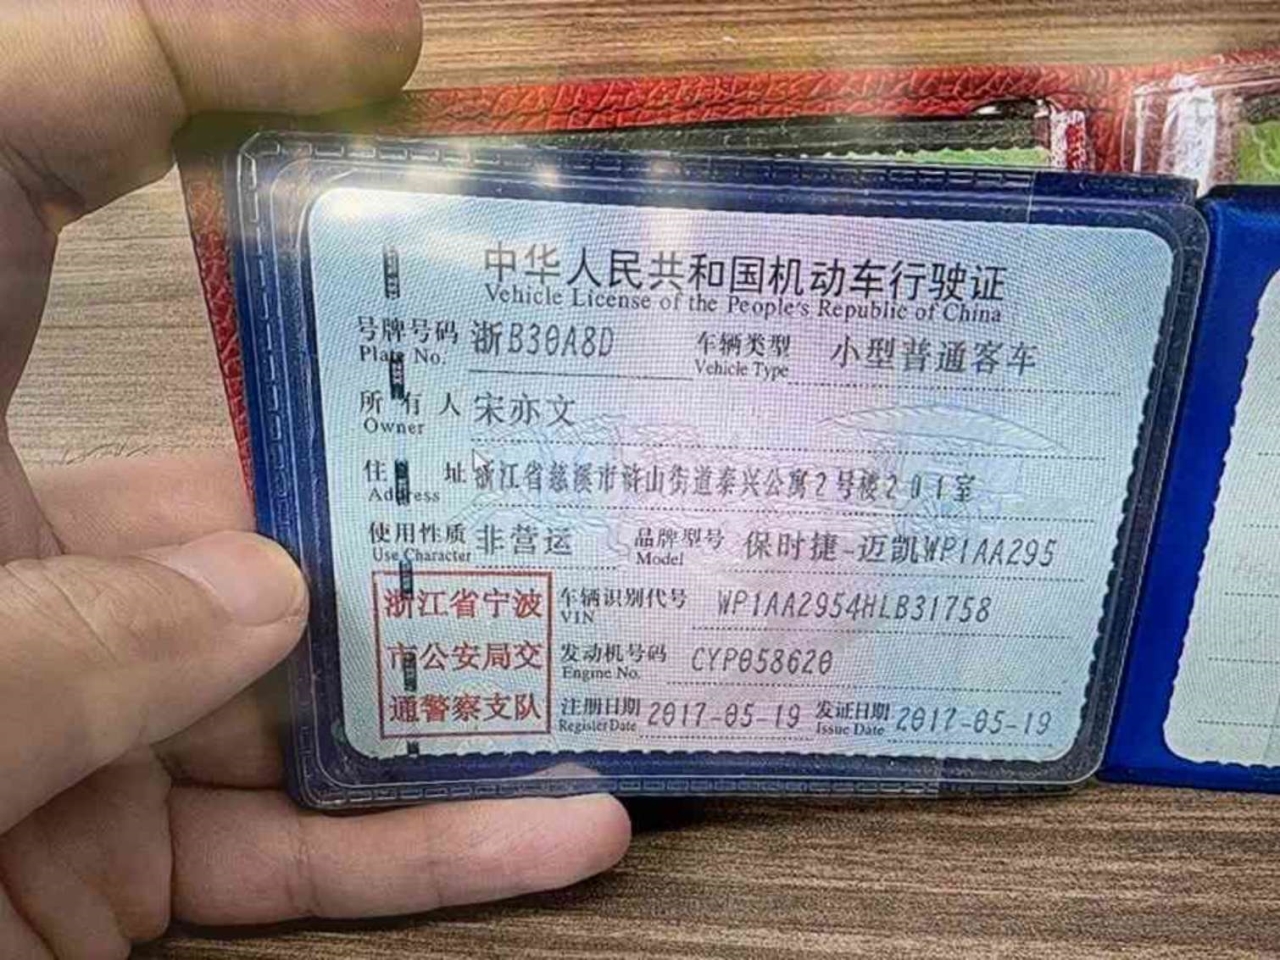 中华人民共和国机动车行驶证
Vehicle License of the People's Republic of China
号牌号码 浙B30A8D 车辆类型 小型普通客车
Plate No. Vehicle Type
所有人 宋亦文
Owner
住址 浙江省慈溪市浒山街道泰兴公寓2号楼201室
Address
使用性质 非营运 品牌型号 保时捷-迈凯WP1AA295
Use Character Model
浙江省宁波
市公安局交
通警察支队
车辆识别代号 WP1AA2954HLB31758
VIN
发动机号码 CYP058620
Engine No.
注册日期 2017-05-19 发证日期 2017-05-19
Register Date Issue Date